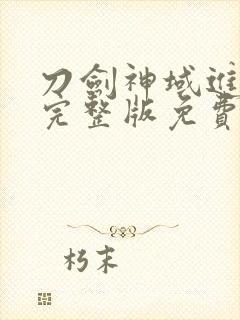 刀劍神域進
完整版免費
朽末